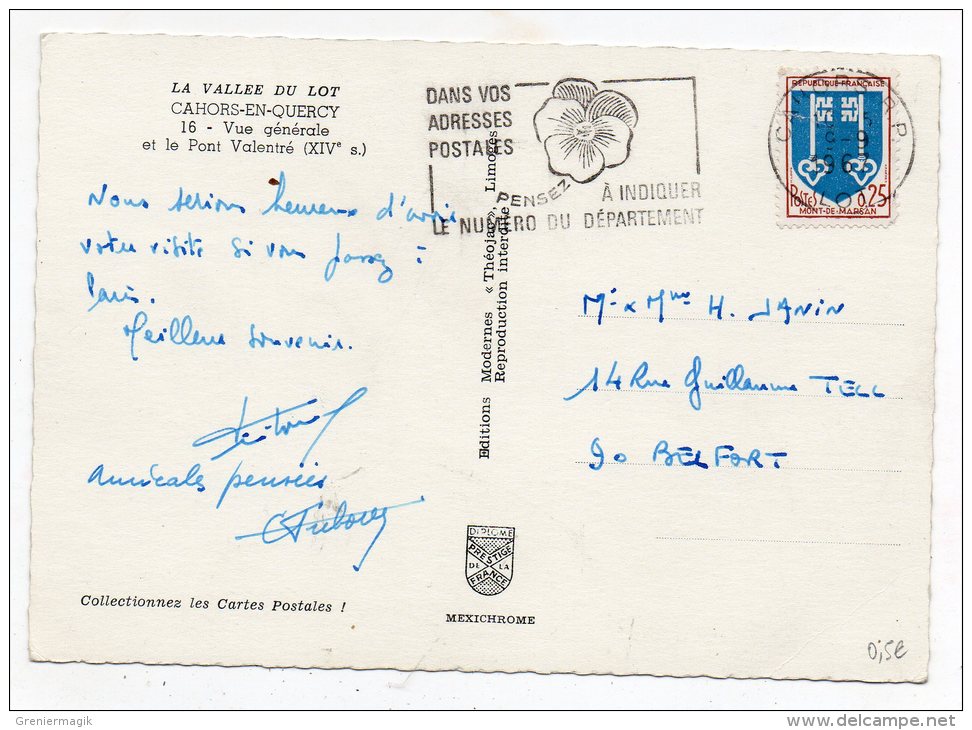 LA VALLEE DU LOT
CAHORS-EN-QUERCY
16 - Vue générale
et le Pont Valentré (XIVe s.)
DANS VOS
ADRESSES
POSTALES
PENSEZ
À INDIQUER
LE NUMÉRO DU DÉPARTEMENT
CAHORS R.P.
LOT
RÉPUBLIQUE FRANÇAISE
POSTES 0,25
MONT-DE-MARSAN
Nous serions heureux d'avoir
votre visite si vous passez à
Paris.
Meilleurs souvenirs.
amicales pensées
Editions Modernes « Théojac », Limoges
Reproduction interdite
Mr x Mme H. JANIN
14 Rue Guillaume TELL
90 BELFORT
DIPLOME
PRESTIGE
DE LA
FRANCE
MEXICHROME
Collectionnez les Cartes Postales !
0,5€
Greniermagik
delcampe.net